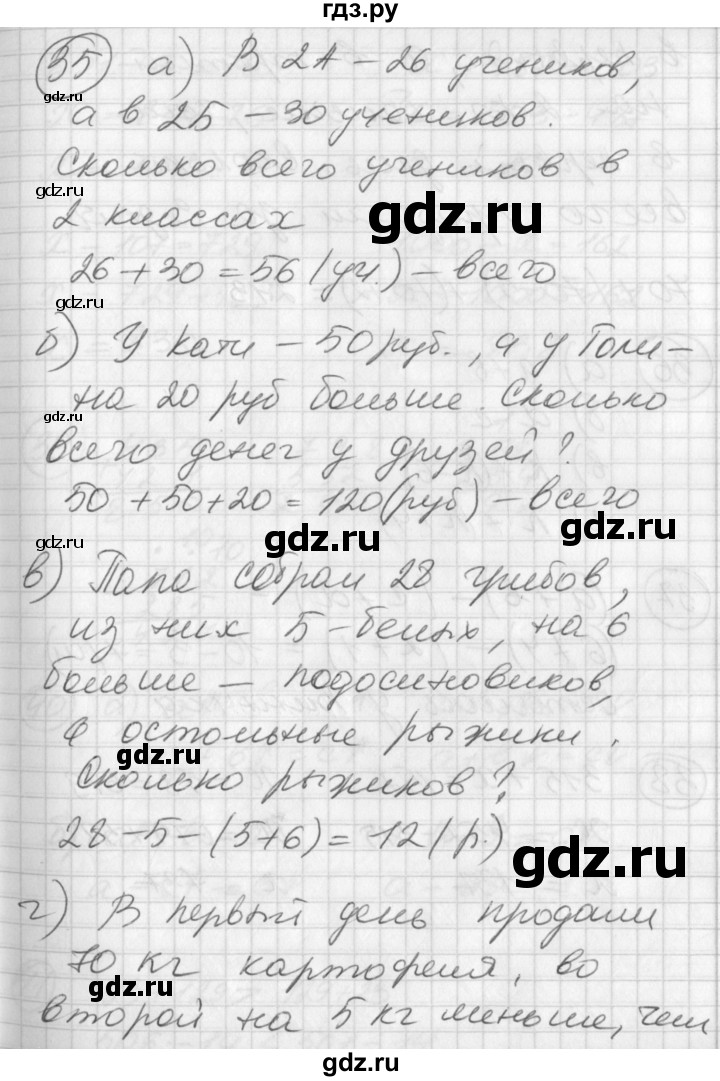 гдз.ру
35 а) В 2А – 26 учеников,
gdz.ru
а в 2Б – 30 учеников.
Сколько всего учеников в
gdz.ru
2 классах
gdz.ru
26 + 30 = 56 (уч.) – всего
gdz.ru
б) У Кати – 50 руб., а у Толи –
на 20 руб больше. Сколько
gdz.ru
всего денег у друзей?
50 + 50 + 20 = 120 (руб) – всего
gdz.ru
gdz.ru
gdz.ru
в) Папа собрал 28 грибов,
из них 5 – белых, на 6
gdz.ru
больше – подосиновиков,
а остольные рыжики.
gdz.ru
Сколько рыжиков?
28 – 5 – (5 + 6) = 12 (р.)
gdz.ru
gdz.ru
г) В первый день продали
70 кг картофеля, во
gdz.ru
второй на 5 кг меньше, чем
gdz.ru